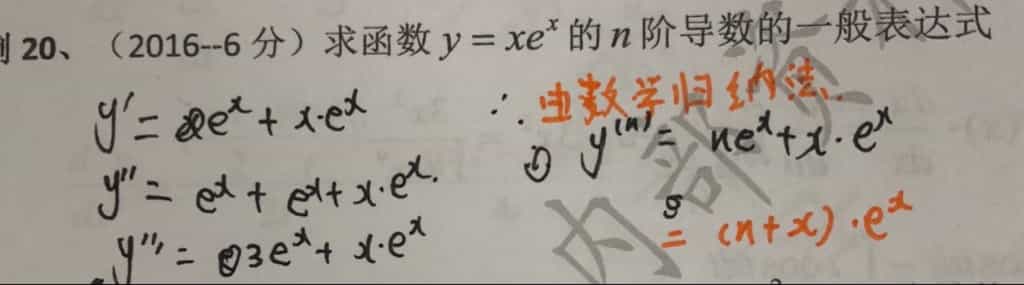 例 20、（2016--6 分）求函数 y = xeˣ 的 n 阶导数的一般表达式
y' = eˣ + x·eˣ
y'' = eˣ + eˣ + x·eˣ.
y''' = 3eˣ + x·eˣ
∴ 由数学归纳法.
y⁽ⁿ⁾ = neˣ + x·eˣ
= (n+x)·eˣ
内部资